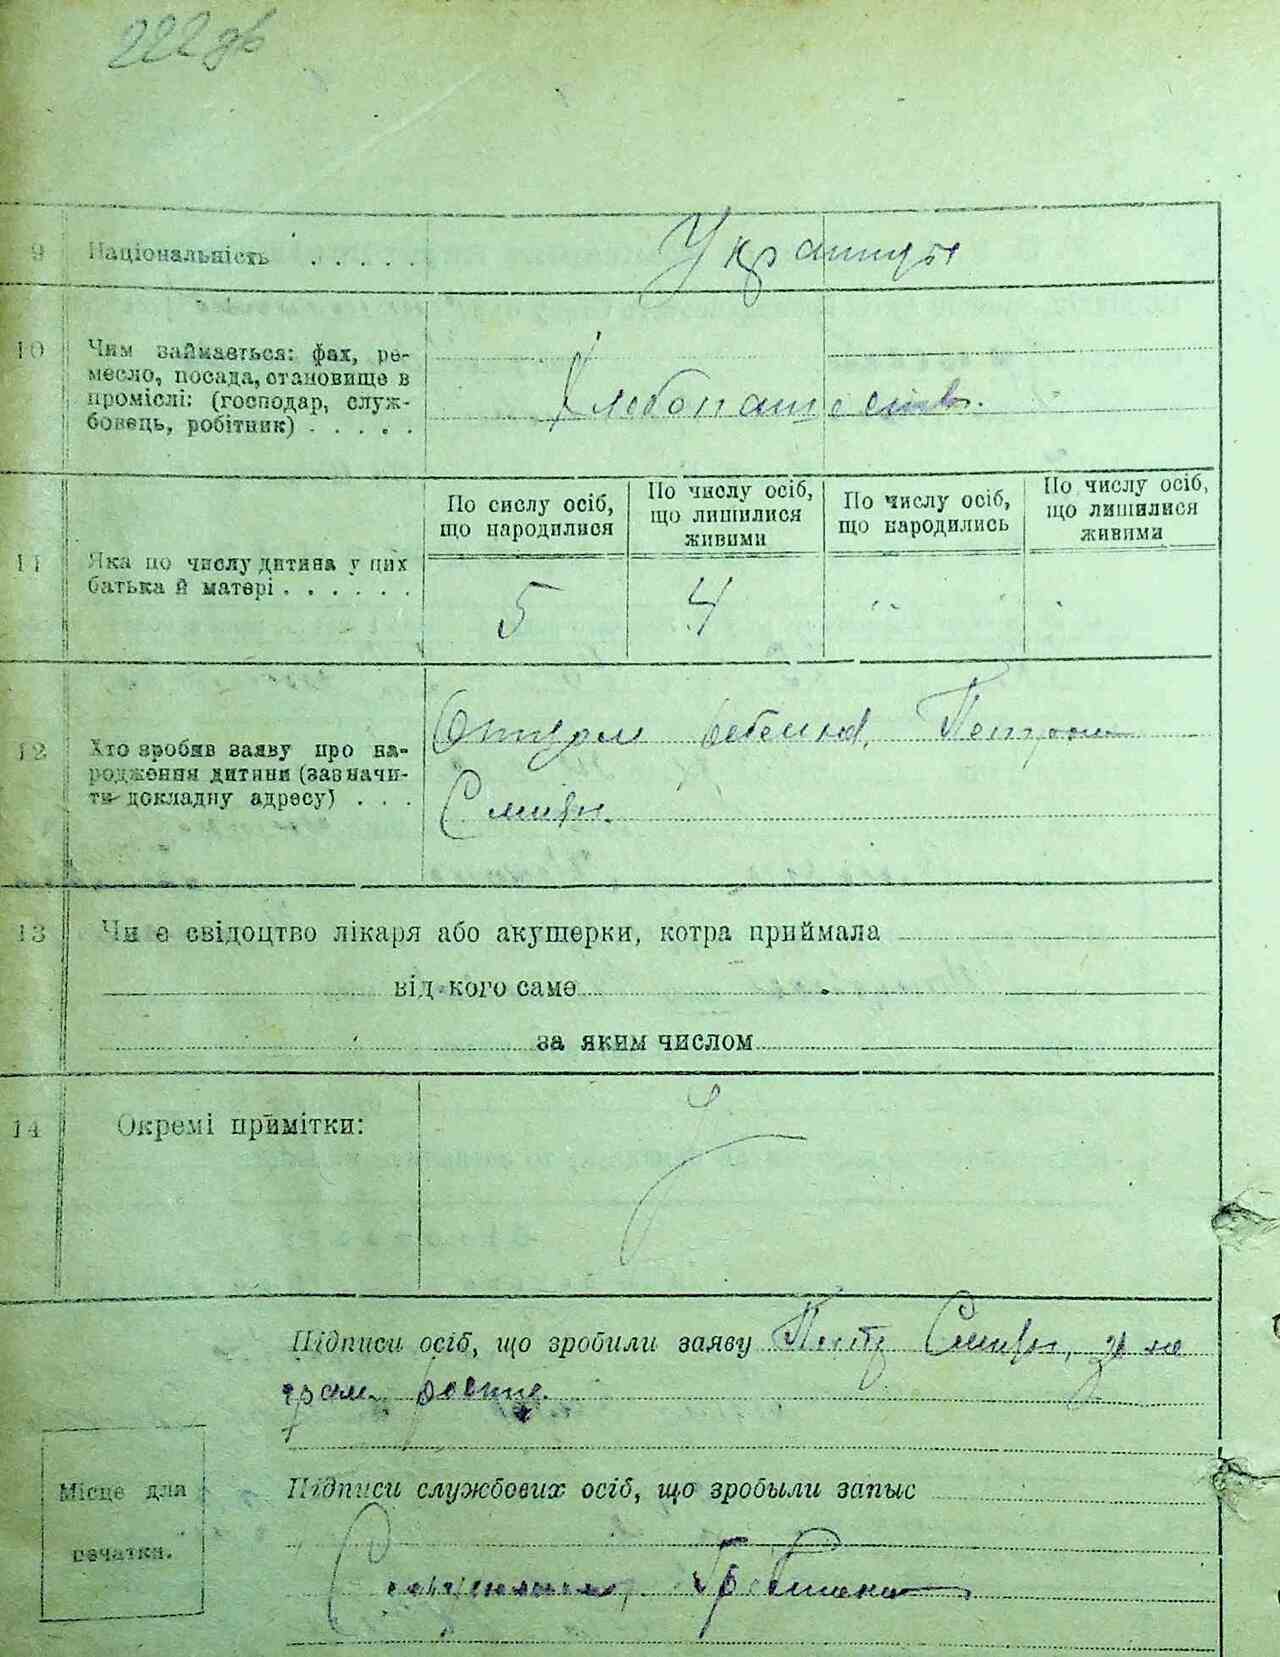 222 зв
9 Національність . . . . . Украинцы
10 Чим займається: фах, ре-
месло, посада, становище в
проміслі: (господар, служ-
бовець, робітник) . . . . . Хлебопашество.
По сислу осіб, По числу осіб, По числу осіб, По числу осіб,
що народилися що лишилися живими що народились що лишилися живими
11 Яка по числу дитина у цих
батька й матері . . . . . . 5 4 " "
12 Хто зробив заяву про на-
родження дитини (зазначи-
ти докладну адресу) . . .
Отцом ребенка, Петром
13 Чи є свідоцтво лікаря або акушерки, котра приймала
від кого саме
за яким числом
14 Окремі примітки:
Підписи осіб, що зробили заяву Петр
Підписи службових осіб, що зробыли запыс
Місце для
печатки.